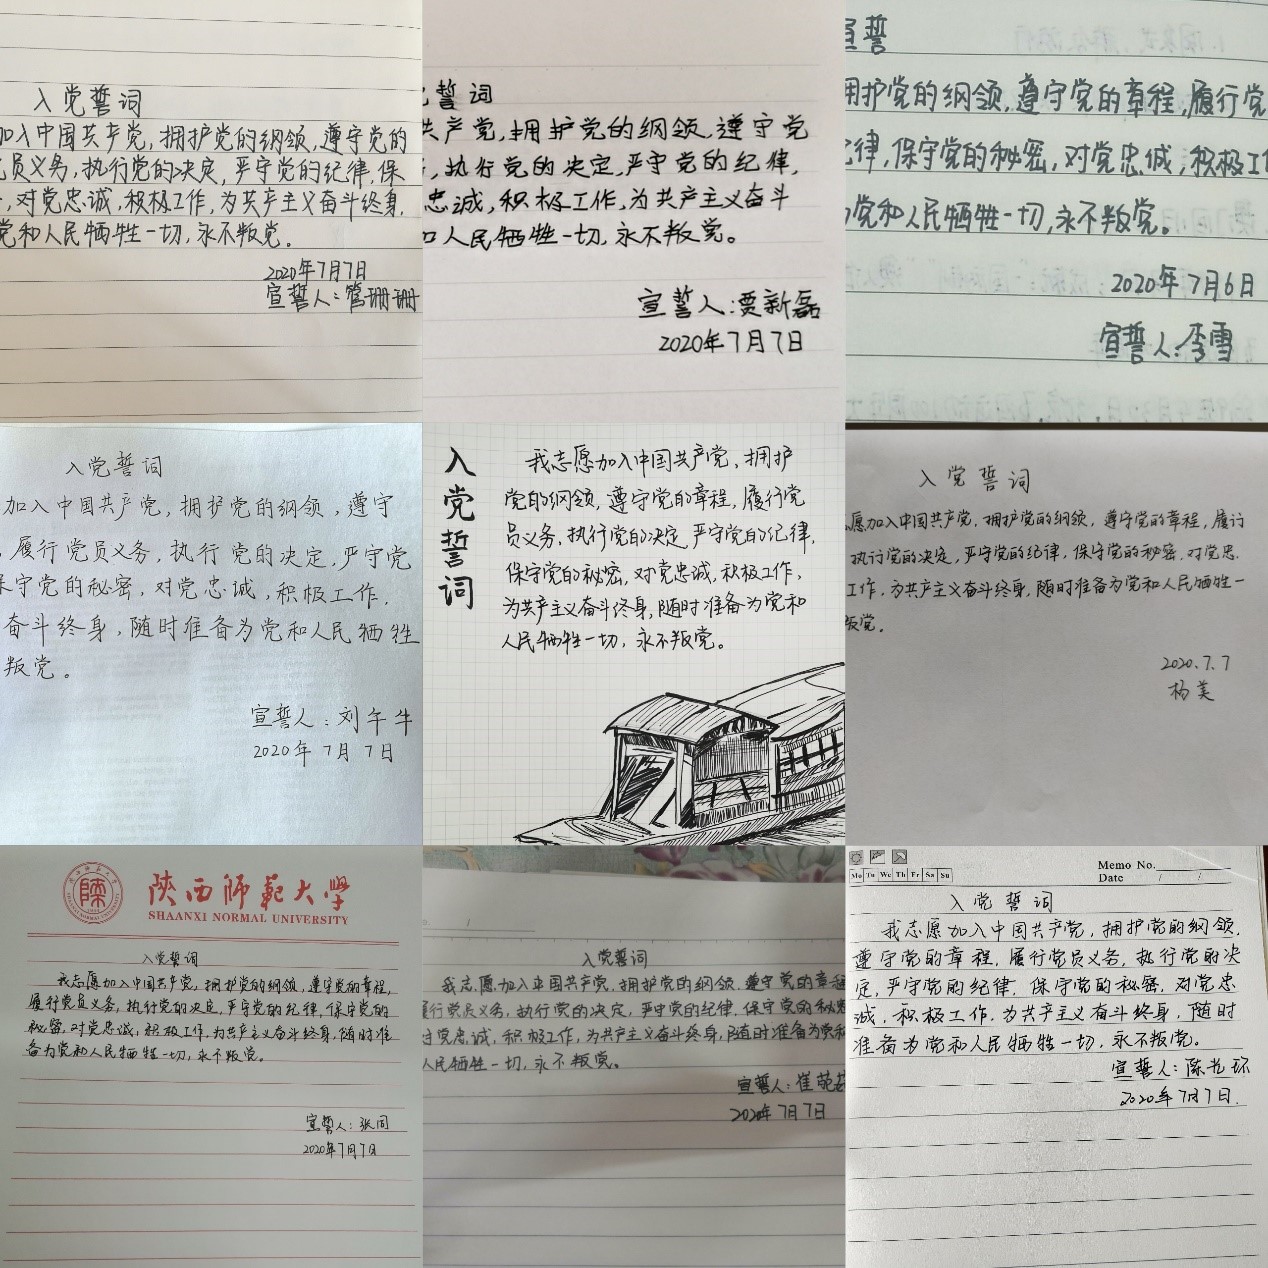 入党誓词
加入中国共产党,拥护党的纲领,遵守党的
党员义务,执行党的决定,严守党的纪律,保
,对党忠诚,积极工作,为共产主义奋斗终身,
党和人民牺牲一切,永不叛党。
2020年7月7日
宣誓人:管珊珊
誓词
共产党,拥护党的纲领,遵守党
,执行党的决定,严守党的纪律,
忠诚,积极工作,为共产主义奋斗
和人民牺牲一切,永不叛党。
宣誓人:贾新磊
2020年7月7日
宣誓
拥护党的纲领,遵守党的章程,履行党
纪律,保守党的秘密,对党忠诚,积极工作
为党和人民牺牲一切,永不叛党。
2020年7月6日
宣誓人:李雪
入党誓词
加入中国共产党,拥护党的纲领,遵守
,履行党员义务,执行党的决定,严守党
保守党的秘密,对党忠诚,积极工作,
奋斗终身,随时准备为党和人民牺牲
叛党。
宣誓人:刘午牛
2020年7月7日
入党誓词
我志愿加入中国共产党,拥护
党的纲领,遵守党的章程,履行党
员义务,执行党的决定,严守党的纪律,
保守党的秘密,对党忠诚,积极工作,
为共产主义奋斗终身,随时准备为党和
人民牺牲一切,永不叛党。
入党誓词
愿加入中国共产党,拥护党的纲领,遵守党的章程,履行
执行党的决定,严守党的纪律,保守党的秘密,对党忠
工作,为共产主义奋斗终身,随时准备为党和人民牺牲一
叛党。
2020.7.7
杨美
陕西师范大学
SHAANXI NORMAL UNIVERSITY
入党誓词
我志愿加入中国共产党,拥护党的纲领,遵守党的章程,
履行党员义务,执行党的决定,严守党的纪律,保守党的
秘密,对党忠诚,积极工作,为共产主义奋斗终身,随时准
备为党和人民牺牲一切,永不叛党。
宣誓人:张同
2020年7月7日
入党誓词
我志愿加入中国共产党,拥护党的纲领,遵守党的章程
履行党员义务,执行党的决定,严守党的纪律,保守党的秘密
对党忠诚,积极工作,为共产主义奋斗终身,随时准备为党和
人民牺牲一切,永不叛党。
宣誓人:崔
2020年7月7日
Memo No.
Mo Tu We Th Fr Sa Su
Date / /
入党誓词
我志愿加入中国共产党,拥护党的纲领,
遵守党的章程,履行党员义务,执行党的决
定,严守党的纪律,保守党的秘密,对党忠
诚,积极工作,为共产主义奋斗终身,随时
准备为党和人民牺牲一切,永不叛党。
宣誓人:陈 环
2020年7月7日.